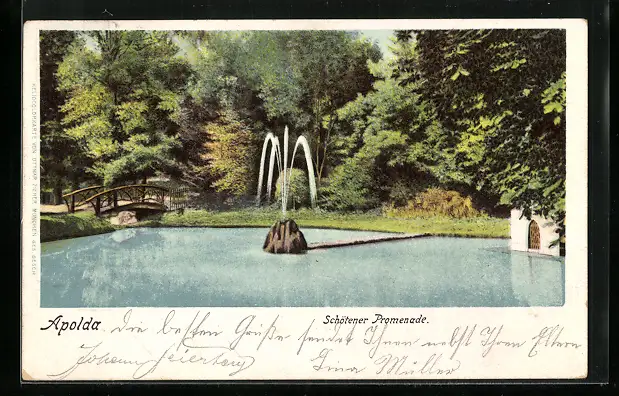 HELIOCOLORKARTE VON OTTMAR ZIEHER, MÜNCHEN GES. GESCH.
Apolda. Schötener Promenade.
Die besten Grüße sendet Ihnen nebst Ihren Eltern
Johann Feiertag Gina Müller